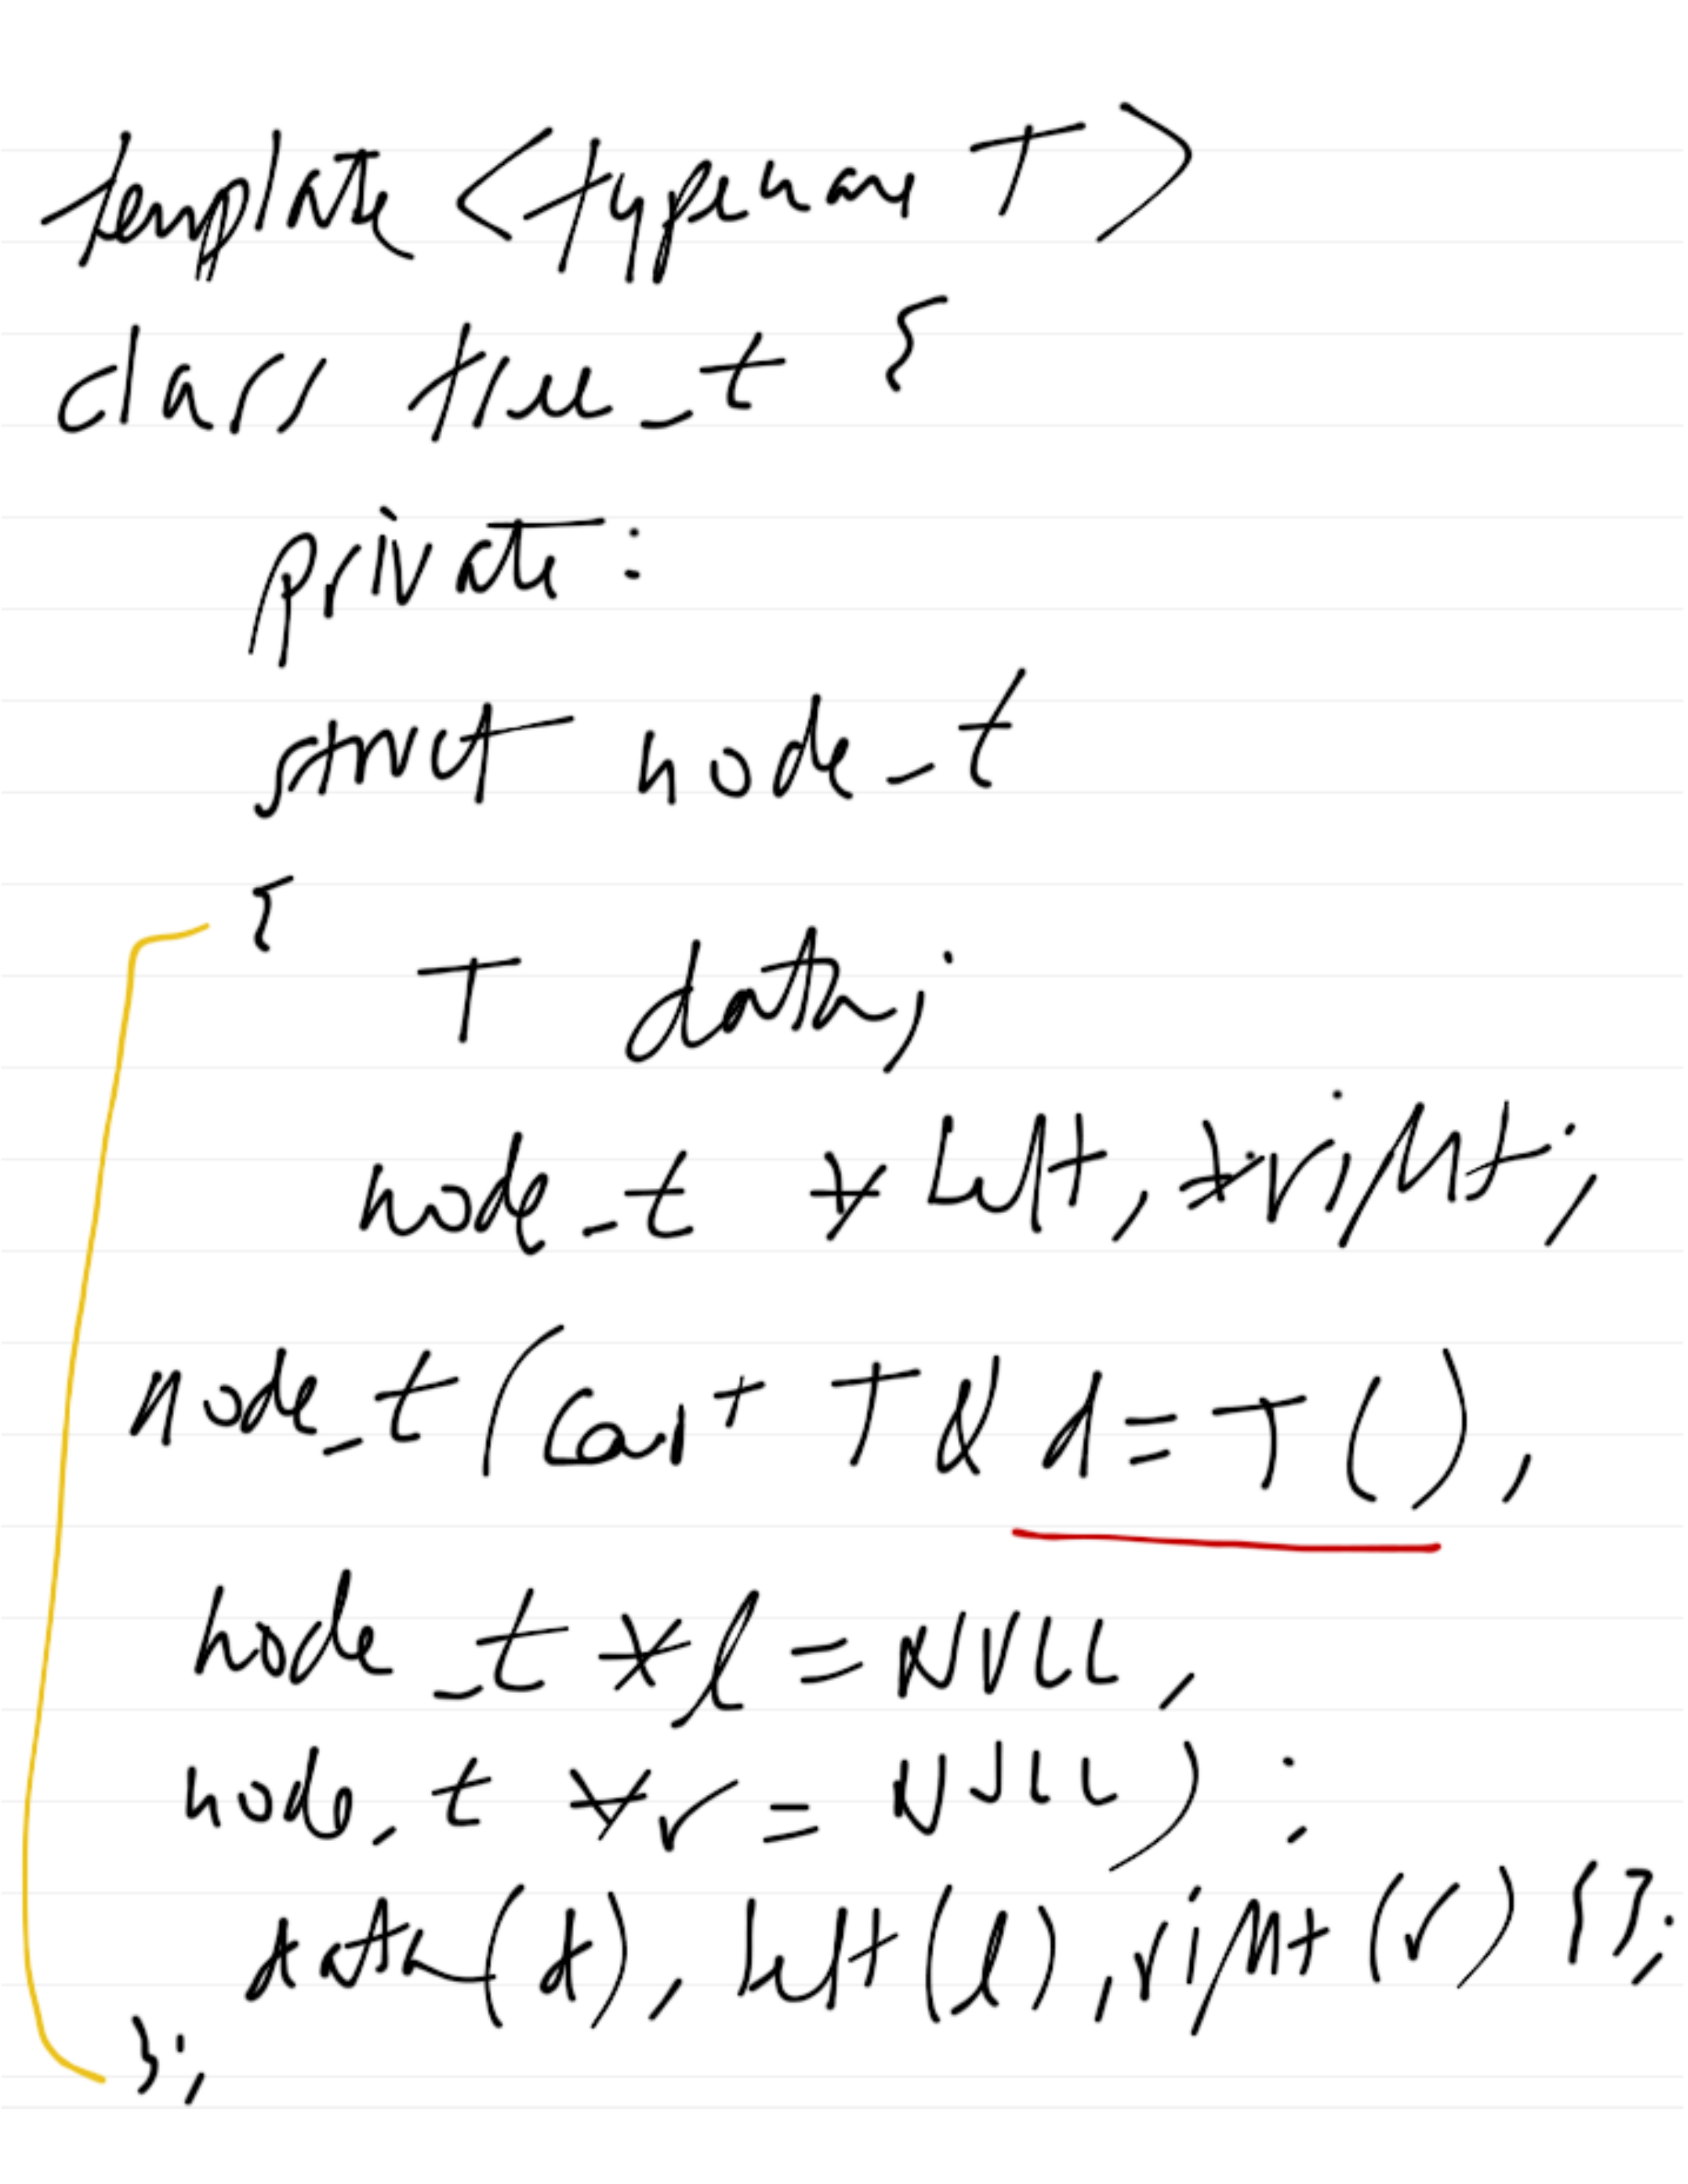 template <typename T>
class tree_t {
private:
struct node_t
{
T data;
node_t *left, *right;
node_t (const T& d = T (),
node_t *l = NULL,
node_t *r = NULL) :
data(d), left(l), right(r) {};
};